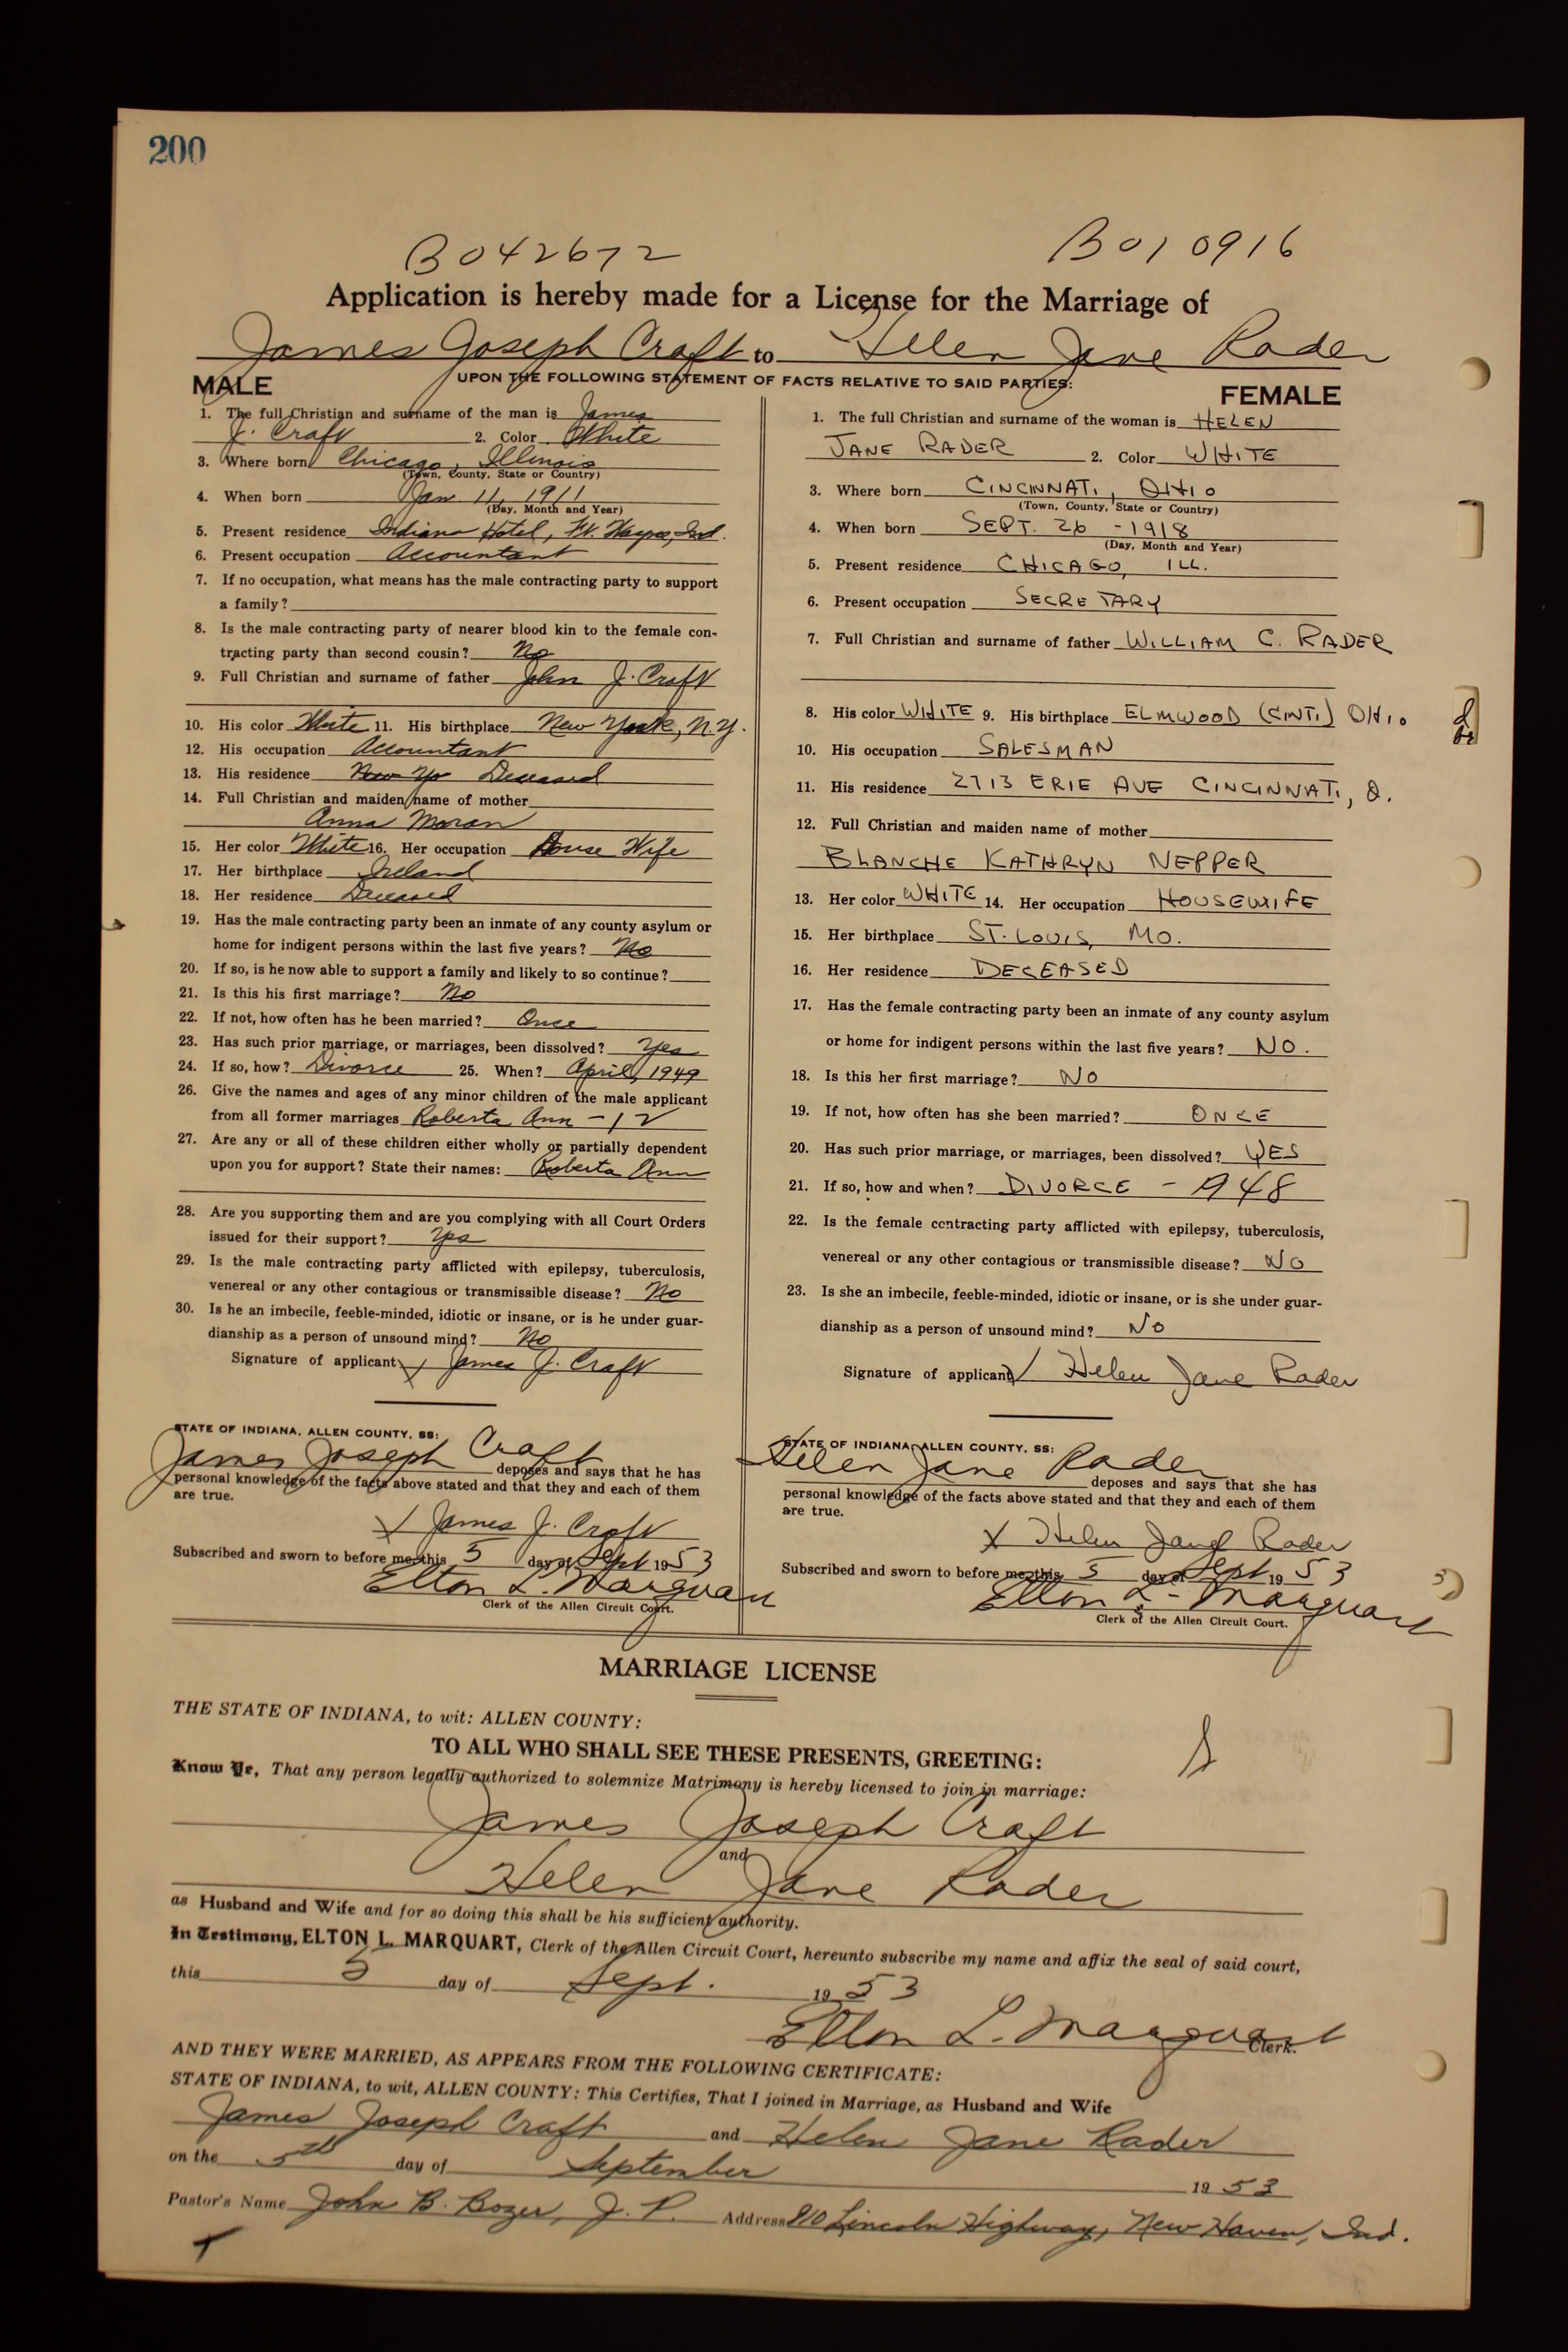 200
B042672 B010916
Application is hereby made for a License for the Marriage of
James Joseph Craft to Helen Jane Rader
UPON THE FOLLOWING STATEMENT OF FACTS RELATIVE TO SAID PARTIES:
MALE
1. The full Christian and surname of the man is James
J. Craft 2. Color White
3. Where born Chicago, Illinois
(Town, County, State or Country)
4. When born Jan 11, 1911
(Day, Month and Year)
5. Present residence Indiana Hotel, Ft. Wayne, Ind.
6. Present occupation Accountant
7. If no occupation, what means has the male contracting party to support
a family?
8. Is the male contracting party of nearer blood kin to the female con-
tracting party than second cousin? No
9. Full Christian and surname of father John J. Craft
10. His color White 11. His birthplace New York, N.Y.
12. His occupation Accountant
13. His residence New Yo Deceased
14. Full Christian and maiden name of mother
Anna Moran
15. Her color White 16. Her occupation House Wife
17. Her birthplace Ireland
18. Her residence Deceased
19. Has the male contracting party been an inmate of any county asylum or
home for indigent persons within the last five years? No
20. If so, is he now able to support a family and likely to so continue?
21. Is this his first marriage? No
22. If not, how often has he been married? Once
23. Has such prior marriage, or marriages, been dissolved? Yes
24. If so, how? Divorce 25. When? April, 1949
26. Give the names and ages of any minor children of the male applicant
from all former marriages Roberta Ann - 12
27. Are any or all of these children either wholly or partially dependent
upon you for support? State their names: Roberta Ann
28. Are you supporting them and are you complying with all Court Orders
issued for their support? Yes
29. Is the male contracting party afflicted with epilepsy, tuberculosis,
venereal or any other contagious or transmissible disease? No
30. Is he an imbecile, feeble-minded, idiotic or insane, or is he under guar-
dianship as a person of unsound mind? No
Signature of applicant X James J. Craft
STATE OF INDIANA, ALLEN COUNTY, SS:
James Joseph Craft deposes and says that he has
personal knowledge of the facts above stated and that they and each of them
are true.
X James J. Craft
Subscribed and sworn to before me this 5 day of Sept 1953
Elton L. Marquart
Clerk of the Allen Circuit Court.
FEMALE
1. The full Christian and surname of the woman is HELEN
JANE RADER 2. Color WHITE
3. Where born CINCINNATI, OHIO
(Town, County, State or Country)
4. When born SEPT. 26 - 1918
(Day, Month and Year)
5. Present residence CHICAGO, ILL.
6. Present occupation SECRETARY
7. Full Christian and surname of father WILLIAM C. RADER
8. His color WHITE 9. His birthplace ELMWOOD (CINTI) OHIO
10. His occupation SALESMAN
11. His residence 2713 ERIE AVE CINCINNATI, O.
12. Full Christian and maiden name of mother
BLANCHE KATHRYN NEPPER
13. Her color WHITE 14. Her occupation HOUSEWIFE
15. Her birthplace ST. LOUIS, MO.
16. Her residence DECEASED
17. Has the female contracting party been an inmate of any county asylum
or home for indigent persons within the last five years? NO.
18. Is this her first marriage? NO
19. If not, how often has she been married? ONCE
20. Has such prior marriage, or marriages, been dissolved? YES
21. If so, how and when? DIVORCE - 1948
22. Is the female contracting party afflicted with epilepsy, tuberculosis,
venereal or any other contagious or transmissible disease? NO
23. Is she an imbecile, feeble-minded, idiotic or insane, or is she under guar-
dianship as a person of unsound mind? NO
Signature of applicant X Helen Jane Rader
STATE OF INDIANA, ALLEN COUNTY, SS:
Helen Jane Rader deposes and says that she has
personal knowledge of the facts above stated and that they and each of them
are true.
X Helen Jane Rader
Subscribed and sworn to before me this 5 day of Sept 1953
Elton L. Marquart
Clerk of the Allen Circuit Court.
MARRIAGE LICENSE
THE STATE OF INDIANA, to wit: ALLEN COUNTY:
TO ALL WHO SHALL SEE THESE PRESENTS, GREETING:
Know Ye, That any person legally authorized to solemnize Matrimony is hereby licensed to join in marriage:
James Joseph Craft
and
Helen Jane Rader
as Husband and Wife and for so doing this shall be his sufficient authority.
In Testimony, ELTON L. MARQUART, Clerk of the Allen Circuit Court, hereunto subscribe my name and affix the seal of said court,
this 5 day of Sept. 1953
Elton L. Marquart
Clerk.
AND THEY WERE MARRIED, AS APPEARS FROM THE FOLLOWING CERTIFICATE:
STATE OF INDIANA, to wit, ALLEN COUNTY: This Certifies, That I joined in Marriage, as Husband and Wife
James Joseph Craft and Helen Jane Rader
on the 5th day of September 1953
Pastor's Name John B. Bozer, J. P. Address 810 Lincoln Highway, New Haven, Ind.